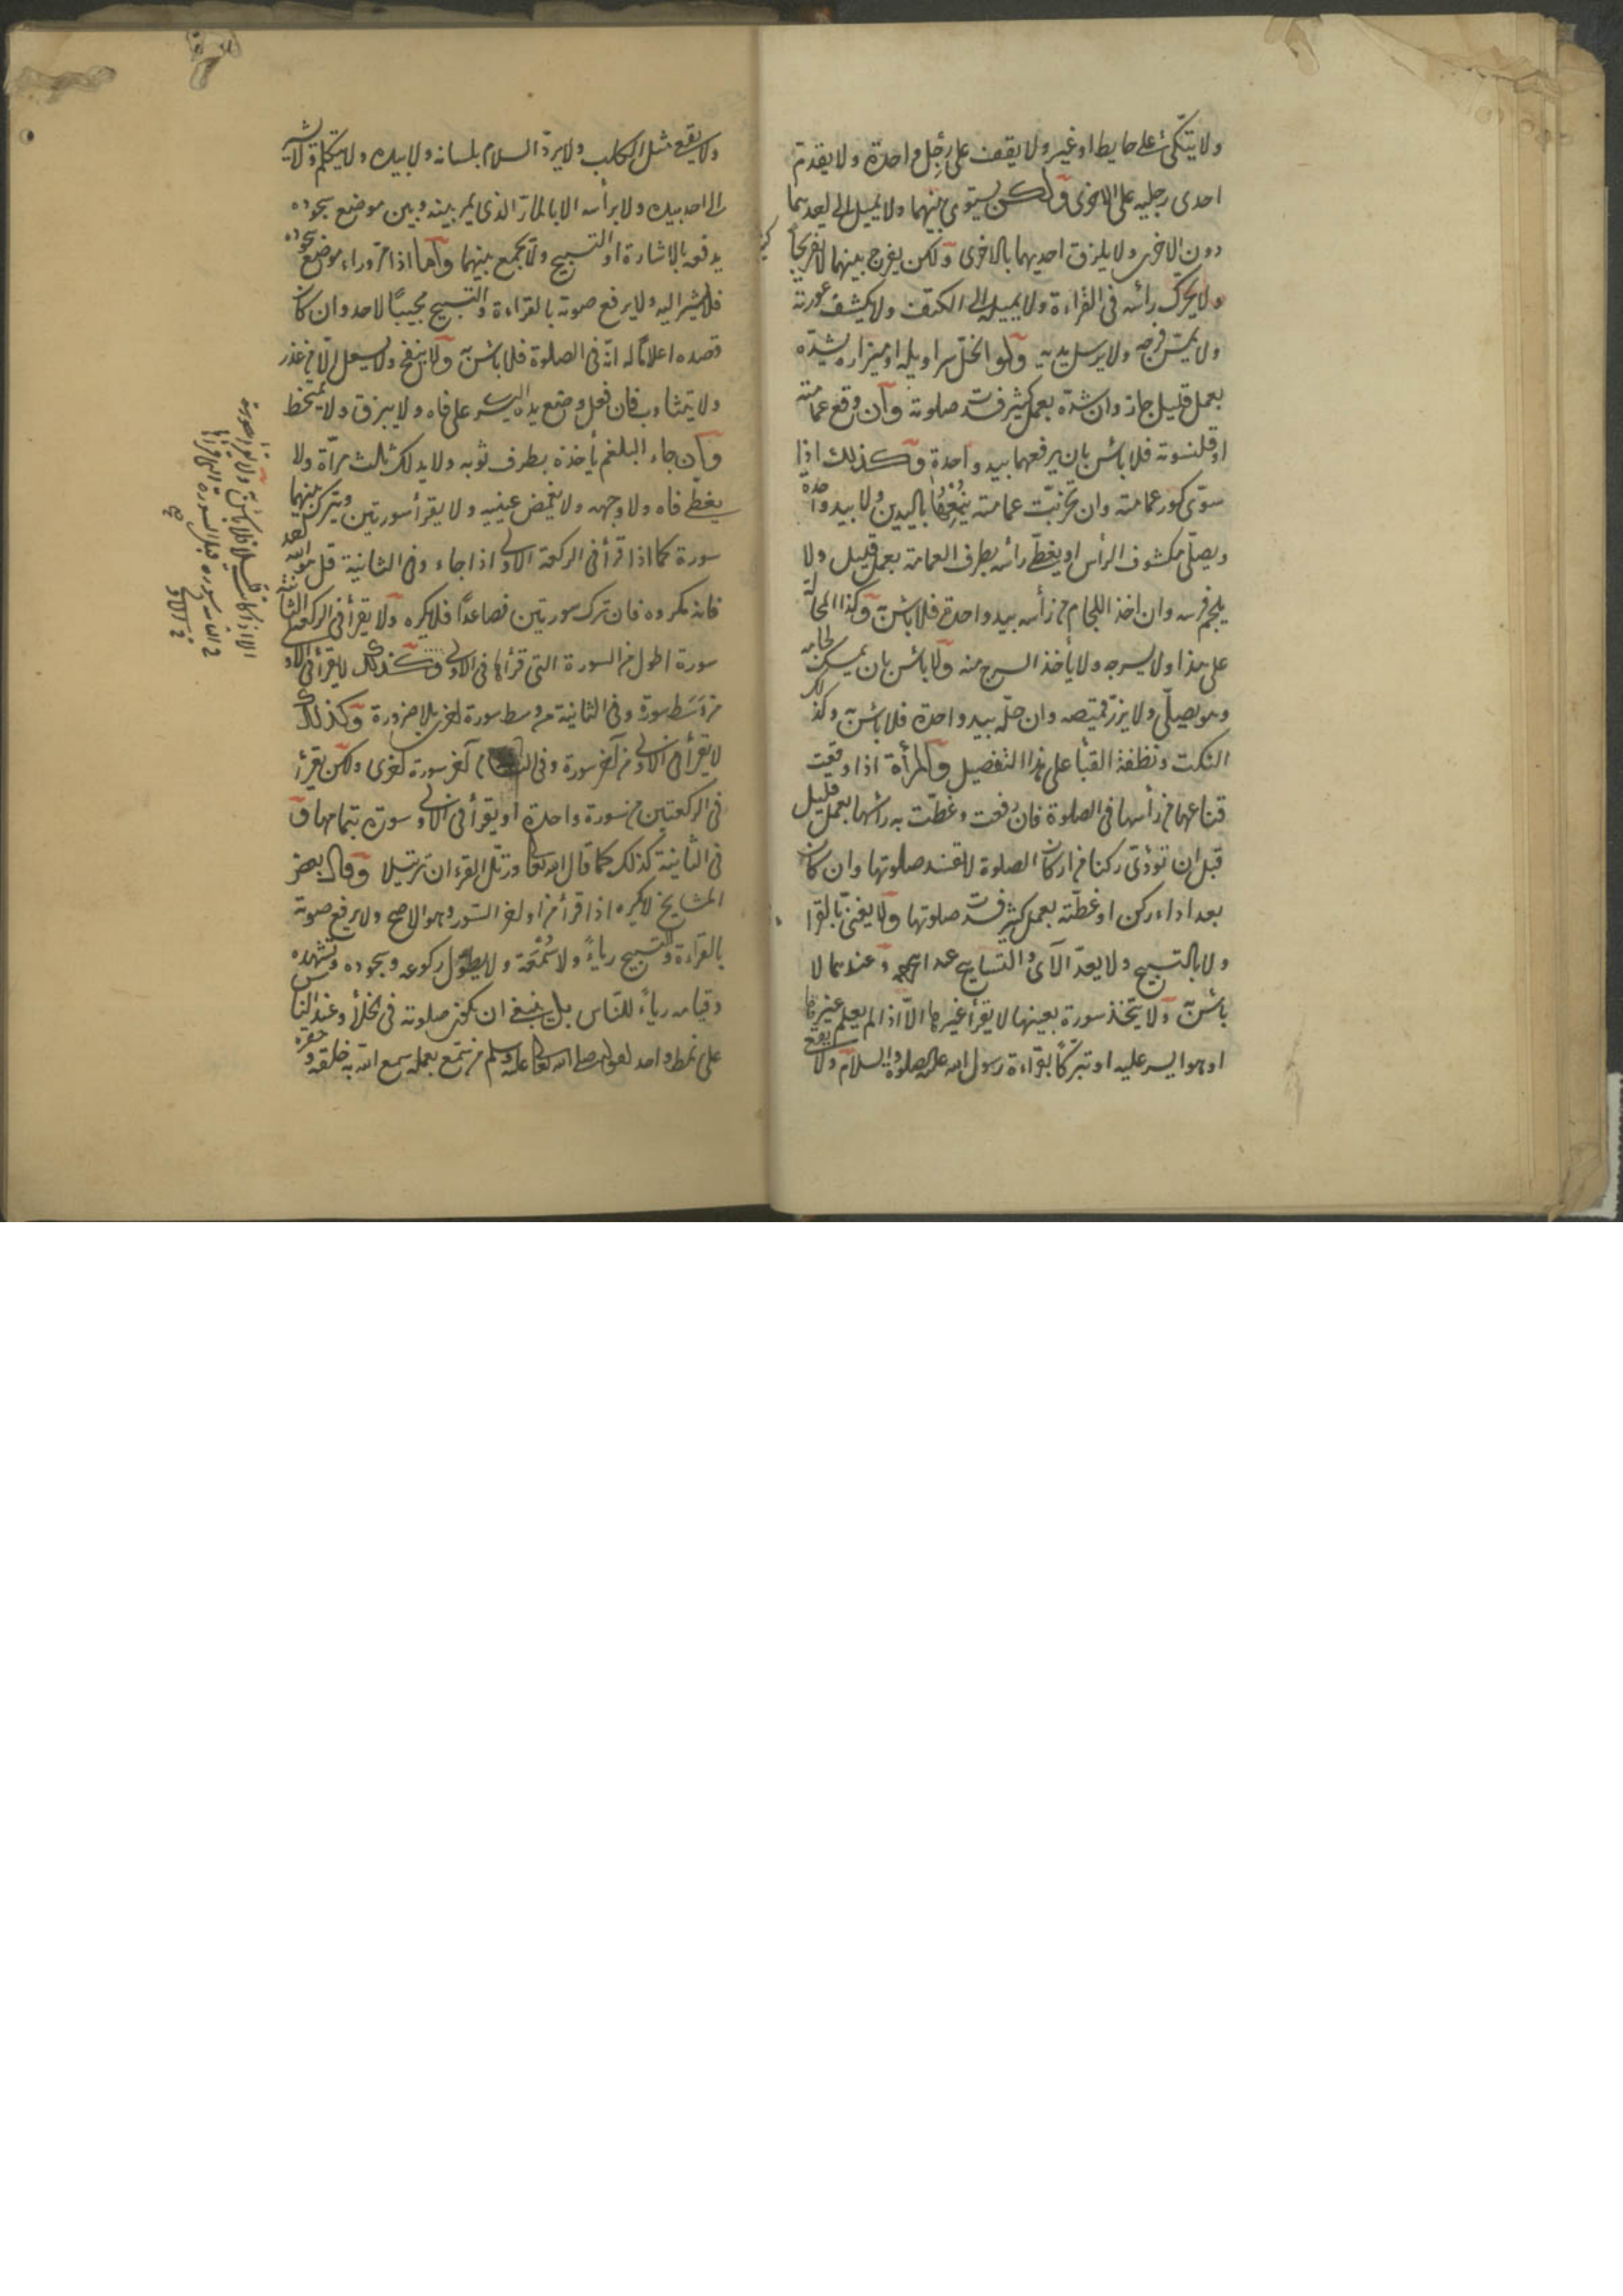 ولا يتكئ على حايط او غيره ولا يقف على رِجل واحدة ولا يقدم
احدى رجليه على الاخرى ولكن يستوى بينهما ولا يميل الى احديهما
دون الاخرى ولا يلزق احديهما بالاخرى ولكن يفرج بينهما لا تفريجاً
ولا يحرّك رأسه فى القراءة ولا يميله الى الكتف ولا يكشف عورته
ولا يمسّ فرجه ولا يرسل يديه ولو انحلّ سراويله او ميزاره يشدّه
بعمل قليل جاز وان شدّه بعمل كثير فسدت صلوته وان وقع عمامته
او قلنسوته فلا بأس بان يرفعهما بيد واحدة وكذلك اذا
سوّى كور عمامته وان تخربّت عمامته باليدين ولا بيد واحدة
ويصلّى مكشوف الرأس او يغطّى رأسه بطرف العمامة بعمل قليل ولا
يلجم فرسه وان اخذ اللجام من رأسه بيد واحدة فلا بأس به وكذا المخلاة
على هذا ولا يسرجه ولا يأخذ السرج منه ولا بأس بان يمسك لجامه
وهو يصلّى ولا يزرّ قميصه وان حلّه بيد واحدة فلا بأس به وكذلك
التكت القبا على هذا التفصيل والمرأة اذا وقعت
قناعها من رأسها فى الصلوة فان رفعت وغطّت به رأسها بعمل قليل
قبل ان تؤدّى ركنا من اركان الصلوة لا تفسد صلوتها وان كان
بعد اداء ركن او غطّته بعمل كثير فسدت صلوتها ولا يغنّى بالقرا
ولا بالتسبيح ولا يعدّ الآى والتسابيح عند ابيح وعندهما لا
بأس به ولا يتّخذ سورة بعينها لا يقرأ غيرها الاّ اذا لم يعلم غيرها
او هو ايسر عليه او تبرّكاً بقراءة رسول الله عليه الصلوة والسلام ولا يقع
ولا يقعى مثل الكلب ولا يردّ السلام بلسانه ولا بيده ولا يتكلم ولا يشير
الى احد بيده ولا برأسه الا بالمارّ الذى يمر بينه وبين موضع سجوده
يدفعه بالاشارة او التسبيح ولا يجمع بينهما واما اذا مرّ وراء موضع سجوده
فلا يشير اليه ولا يرفع صوته بالقراءة والتسبيح مجيباً لاحد وان كان
قصده اعلاماً له انّه فى الصلوة فلا بأس به ولا ينفخ ولا يسعل الاّ من عذر
ولا يتثاوب فان فعل وضع يده اليسرى على فاه ولا يبزق ولا يتمخط
وان جاء البلغم يأخذه بطرف ثوبه ولا يدلك ثالث مرّة ولا
يغطّى فاه ولا وجهه ولا يغمض عينيه ولا يقرأ سورتين ويترك بينهما
سورة كما اذا قرأ فى الركعة الاولى اذا جاء وفى الثانية قل هو الله احد
فانه مكروه فان ترك سورتين فصاعداً فلا يكره ولا يقرأ فى الركعة الثانية
سورة اطول من السورة التى قرأها فى الاولى وكذلك لا يقرأ فى الاولى
من وَسَط سورة وفى الثانية من وسط سورة اخرى بلا ضرورة وكذلك
لا يقرأ فى الاولى من آخر سورة وفى الثانية من آخر سورة اخرى ولكن يقرأ
فى الركعتين من سورة واحدة او يقرأ فى الاولى سورة بتمامها و
فى الثانية كذلك كما قال الله تعالى ورتّل القرءان ترتيلا وقال بعض
المشايخ لا يكره اذا قرأ من اواخر السّور وهو الاصح ولا يرفع صوته
بالقراءة والتسبيح رياءً ولا سُمْعَة ولا يطوّل ركوعه وسجوده وتشهده
وقيامه رياءً للناس بل ينبغى ان يكون صلوته فى الخلأ وعند الناس
على نمط واحد لقوله صلى الله تعالى عليه وسلم من سمّع بعمله سمع الله به خلقه وحقره